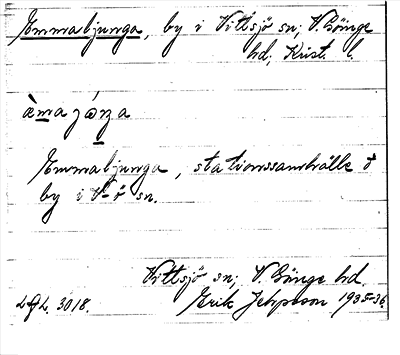 Emmaljunga, by i Vittsjö sn; V. Göinge
hd, Krist. l.
Emmaljunga, stationssamhälle o
by i V-ö sn.
Vittsjö sn; V. Göinge hd.
LAL. 3018. Erik Jeppsson 1935-36.